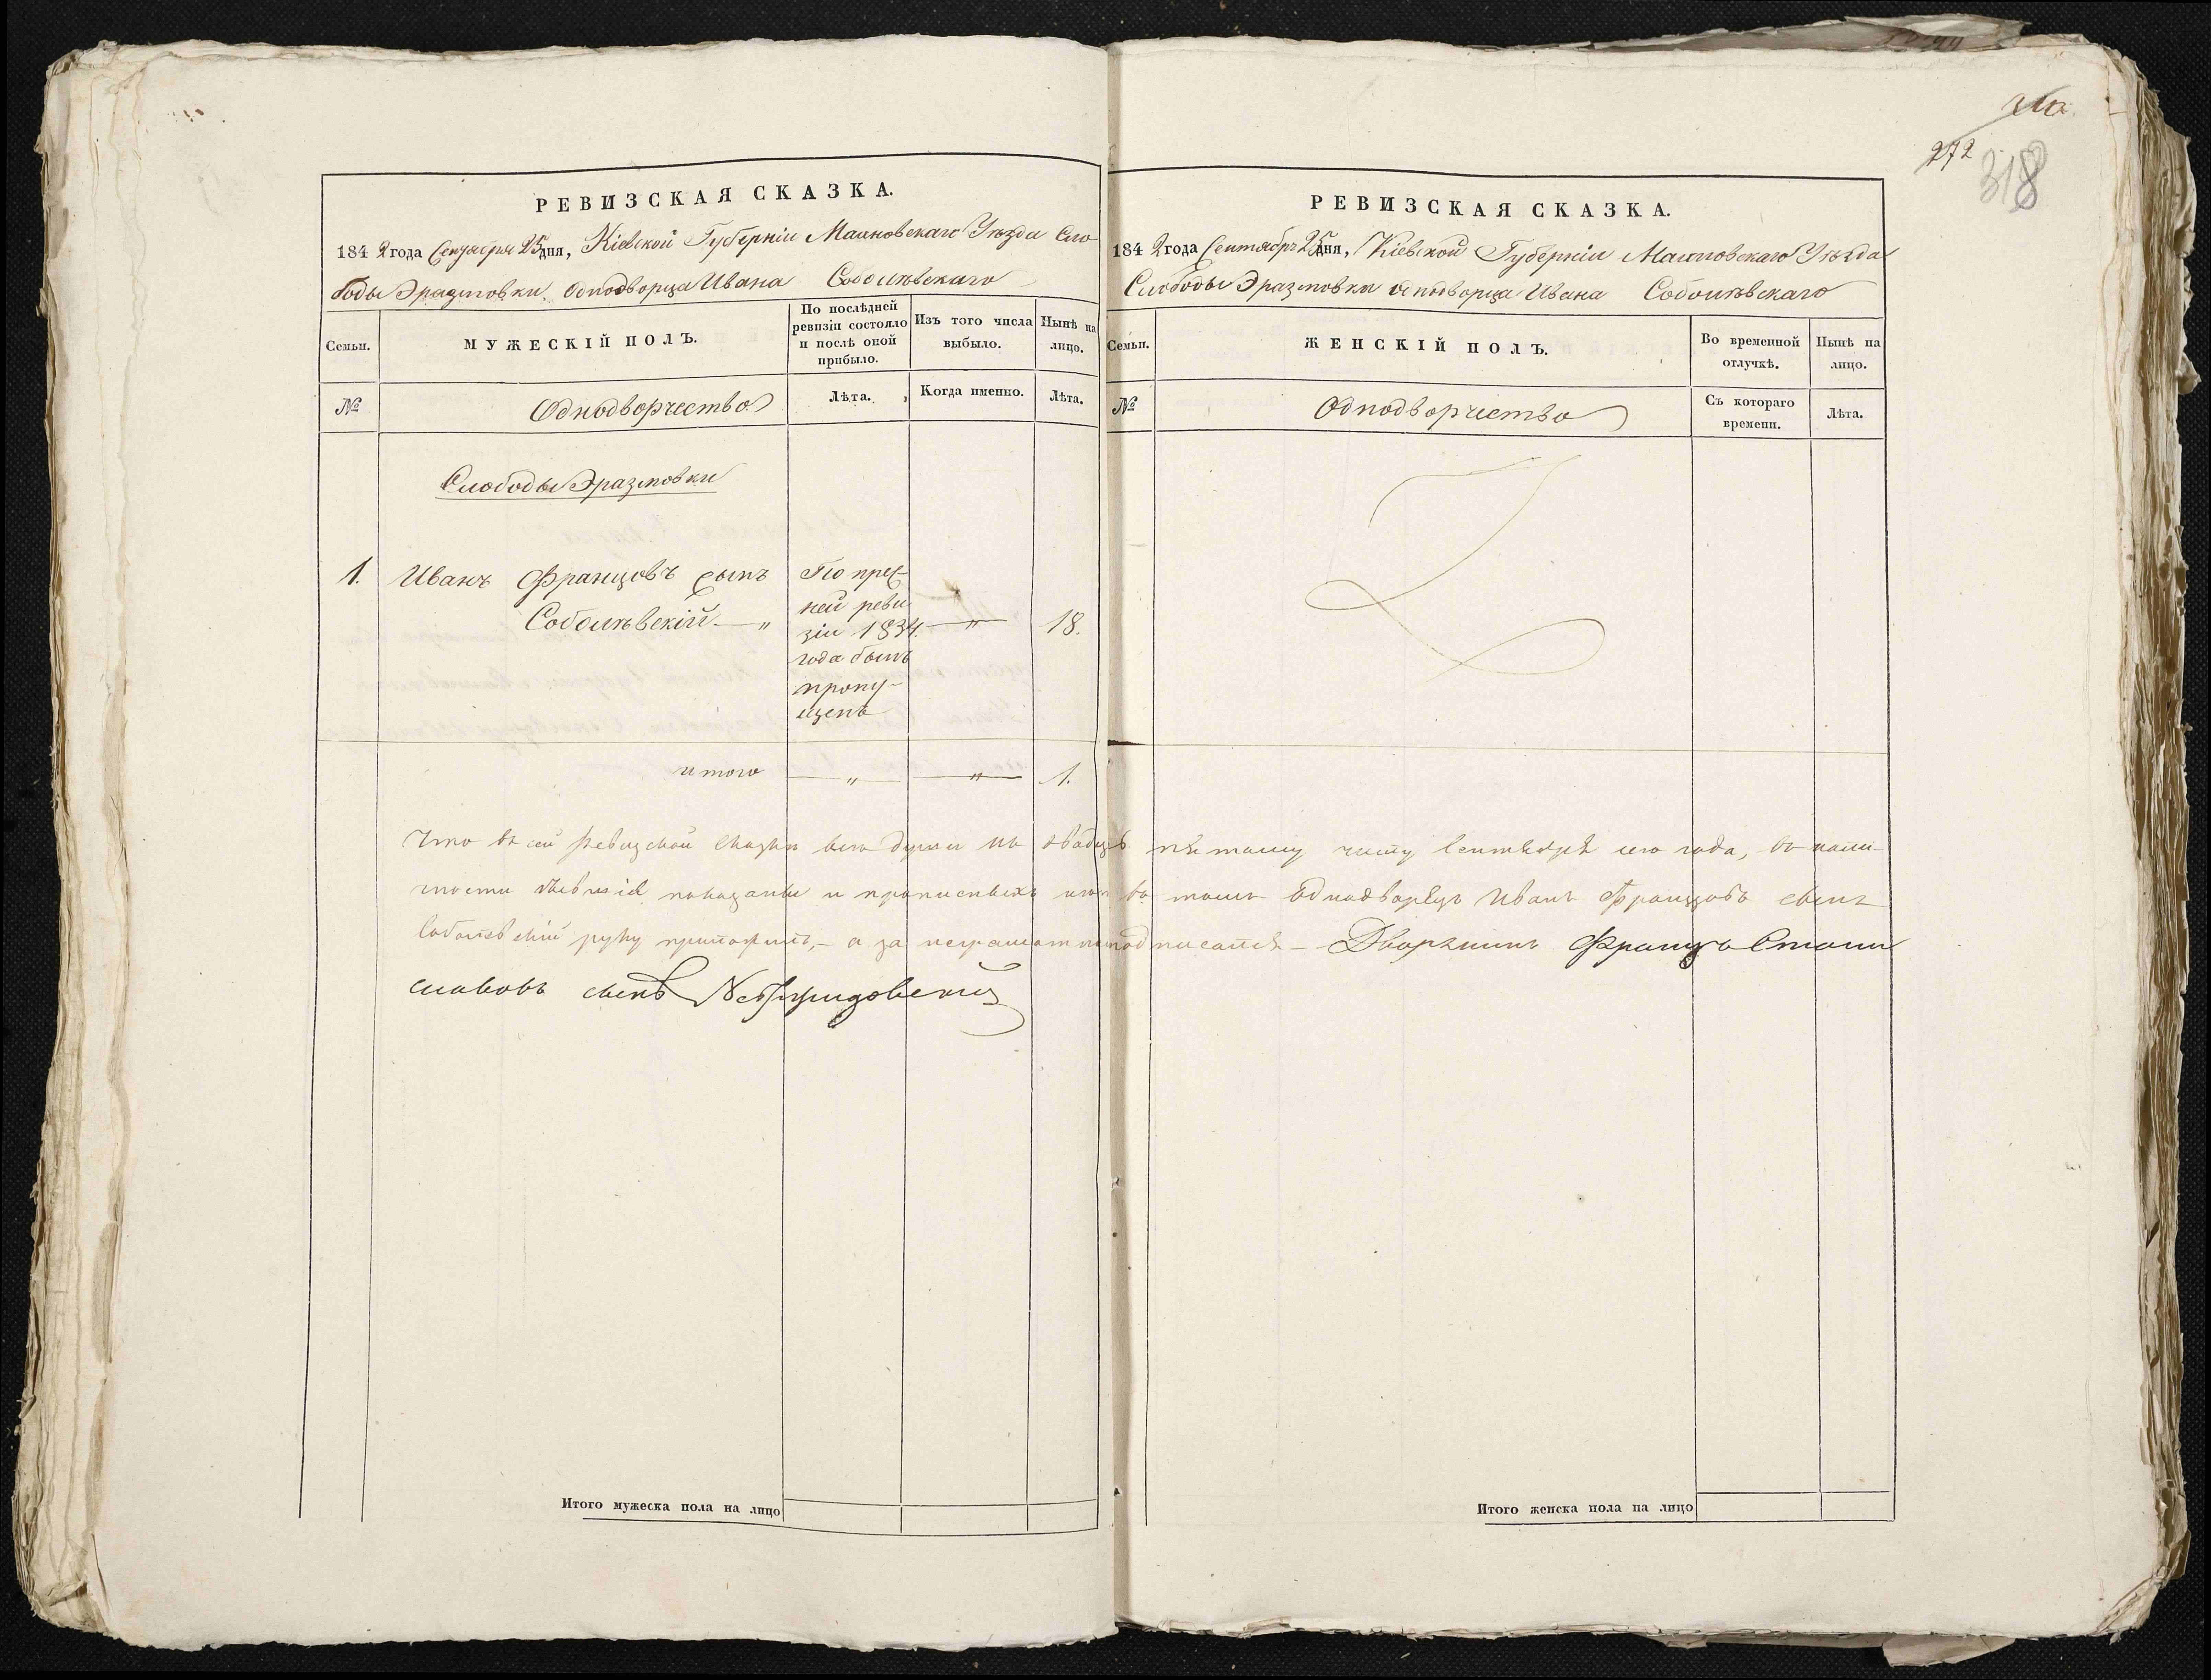 272
318
РЕВИЗСКАЯ СКАЗКА.
1842 года Сентября 25 дня, Кіевской Губерніи Махновскаго Уѣзда Сло
боды Эразмовки Однодворца Ивана Соболѣвскаго
Семьи.
МУЖЕСКІЙ ПОЛЪ.
По послѣдней ревизіи состояло и послѣ оной прибыло.
Изъ того числа выбыло.
Нынѣ на лицо.
№
Однодворчество
Лѣта.
Когда именно.
Лѣта.
Слободы Эразмовки
1. Иванъ Францовъ сынъ
Соболѣвскій — „
По преж-
ней реви
зіи 1834
года былъ
пропу-
щенъ
— „ —
18.
итого — „ — — „ — 1.
РЕВИЗСКАЯ СКАЗКА.
1842 года Сентября 25 дня, Кіевской Губерніи Махновскаго Уѣзда
Слободы Эразмовки однодворца Ивана Соболѣвскаго
Семьи.
ЖЕНСКІЙ ПОЛЪ.
Во временной отлучкѣ.
Нынѣ на лицо.
№
Однодворчество
Съ котораго времени.
Лѣта.
Что въ сей Ревизской сказки всѣ души по двадцать пятому числу Сентября сего года, въ налич
ности показаны и прописныхъ нѣтъ въ томъ Однодворецъ Иванъ Францовъ сынъ
Соболѣвскій руку приложилъ, – а за неграмотна подписался – Дворянинъ Францъ Стани
славовъ сынъ
Итого мужеска пола на лицо
Итого женска пола на лицо